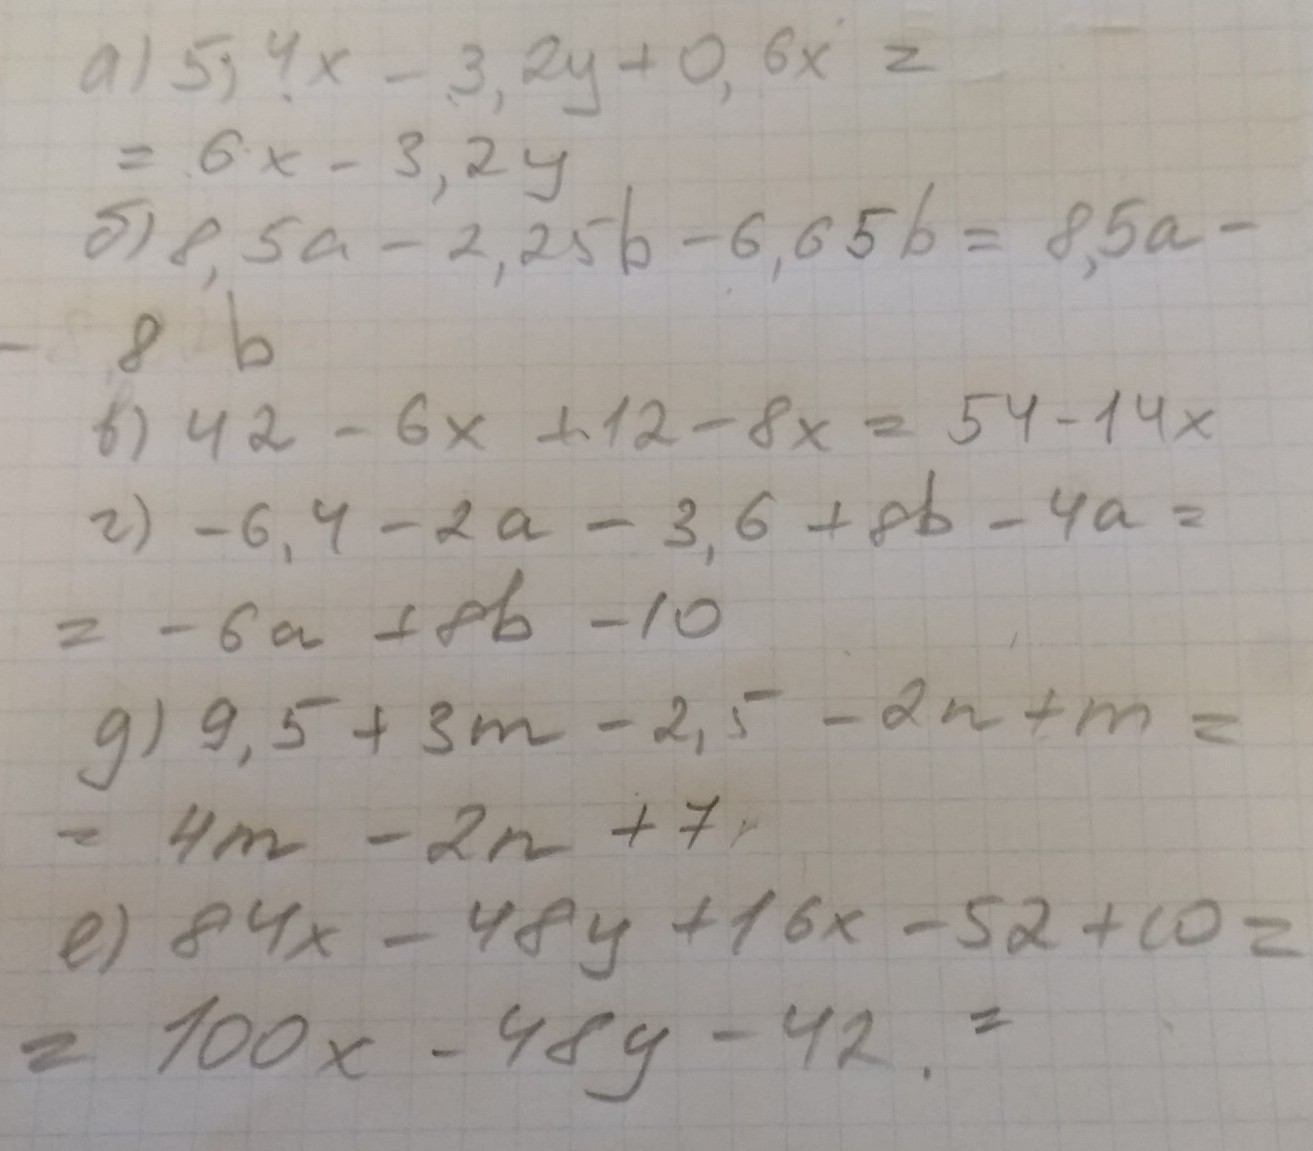 а) 5,4x - 3,2y + 0,6x =
= 6x - 3,2y
б) 8,5a - 2,25b - 6,65b = 8,5a -
- 8 b
в) 42 - 6x + 12 - 8x = 54 - 14x
г) -6,4 - 2a - 3,6 + 8b - 4a =
= -6a + 8b - 10
д) 9,5 + 3m - 2,5 - 2n + m =
= 4m - 2n + 7
е) 84x - 48y + 16x - 52 + 10 =
= 100x - 48y - 42. =